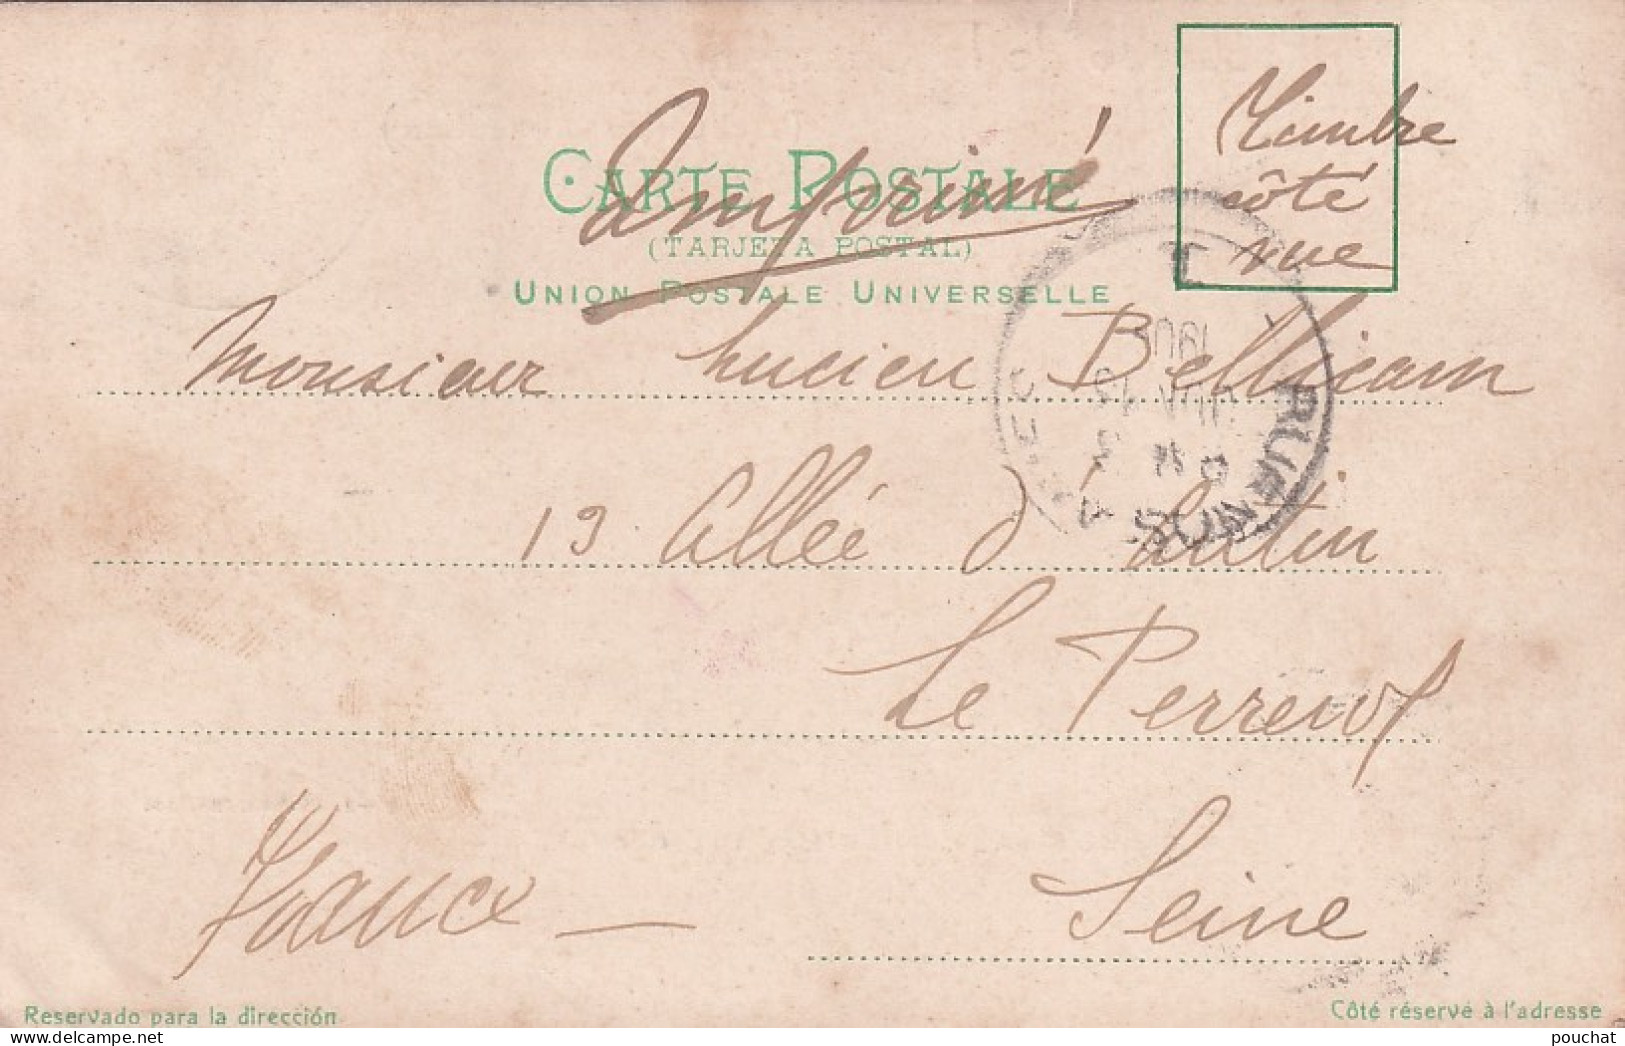 CARTE POSTALE
Imprimé
(TARJETA POSTAL)
UNION POSTALE UNIVERSELLE
Timbre
côté
vue
BUENOS A
Monsieur Lucien Bellicam
19 Allée d'Antin
Le Perreux
Seine
France —
Reservado para la dirección
Côté réservé à l'adresse
www.delcampe.net
pouchat